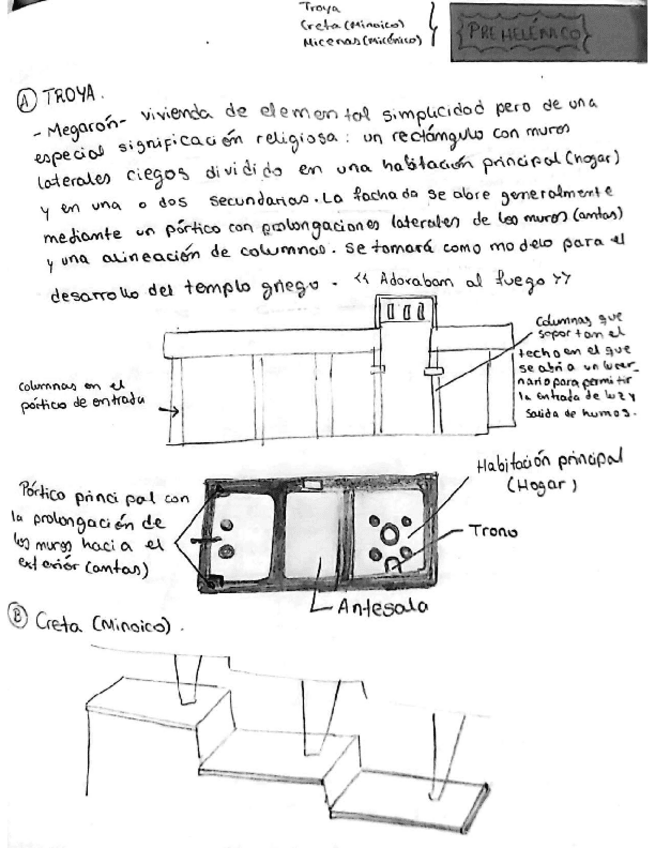 Troya
Creta (Minoico)
Micenas (Micénico)
PREHELÉNICO
A TROYA.
- Megarón - vivienda de elemental simplicidad pero de una
especial significación religiosa: un rectángulo con muros
laterales ciegos dividido en una habitación principal (hogar)
y en una o dos secundarias. La fachada se abre generalmente
mediante un pórtico con prolongaciones laterales de los muros (antas)
y una alineación de columnas. Se tomará como modelo para el
desarrollo del templo griego. << Adoraban al fuego >>
Columnas que
soportan el
techo en el que
se abría un lucer-
nario para permitir
la entrada de luz y
salida de humos.
columnas en el
pórtico de entrada
Pórtico principal con
la prolongación de
los muros hacia el
exterior (antas)
Habitación principal
(Hogar)
Trono
Antesala
B Creta (Minoico).